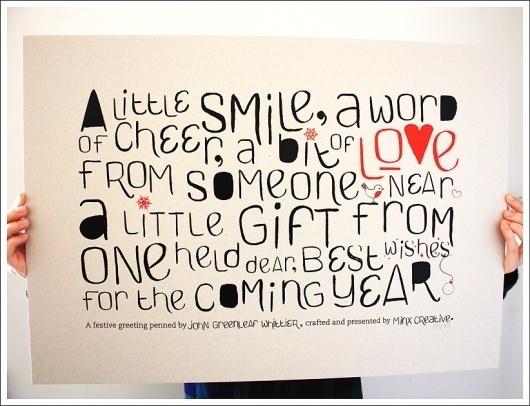 A Little SMiLe, a WORD
OF CHeeR, a bit OF LOVe
FROM SOMEONE NEAR
a LITTLE GiFT FROM
ONE HeLD DeaR, BEST WisHes
FOR the COMING YEAR
A festive greeting penned by JOHN GReeNLeaF WHittieR, crafted and presented by MiNX CReative.